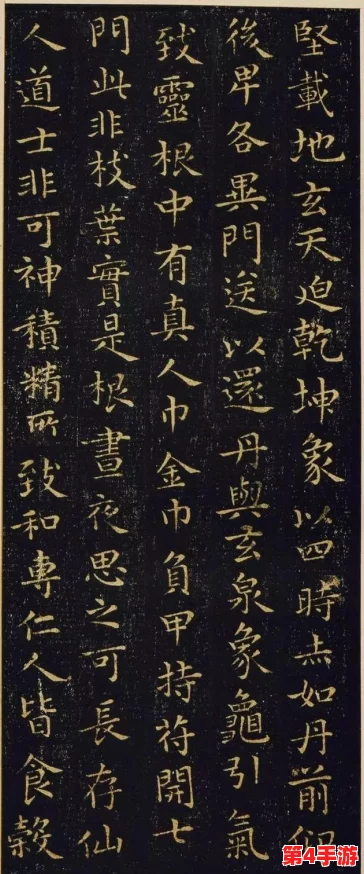 堅載地玄天迫乾坤象以四時赤如丹前仰
後卑各異門送以還丹與玄泉象龜引氣
致靈根中有真人巾金巾負甲持苻開七
門此非枝葉實是根晝夜思之可長存仙
人道士非可神積精所致和專仁人皆食榖
第4手游